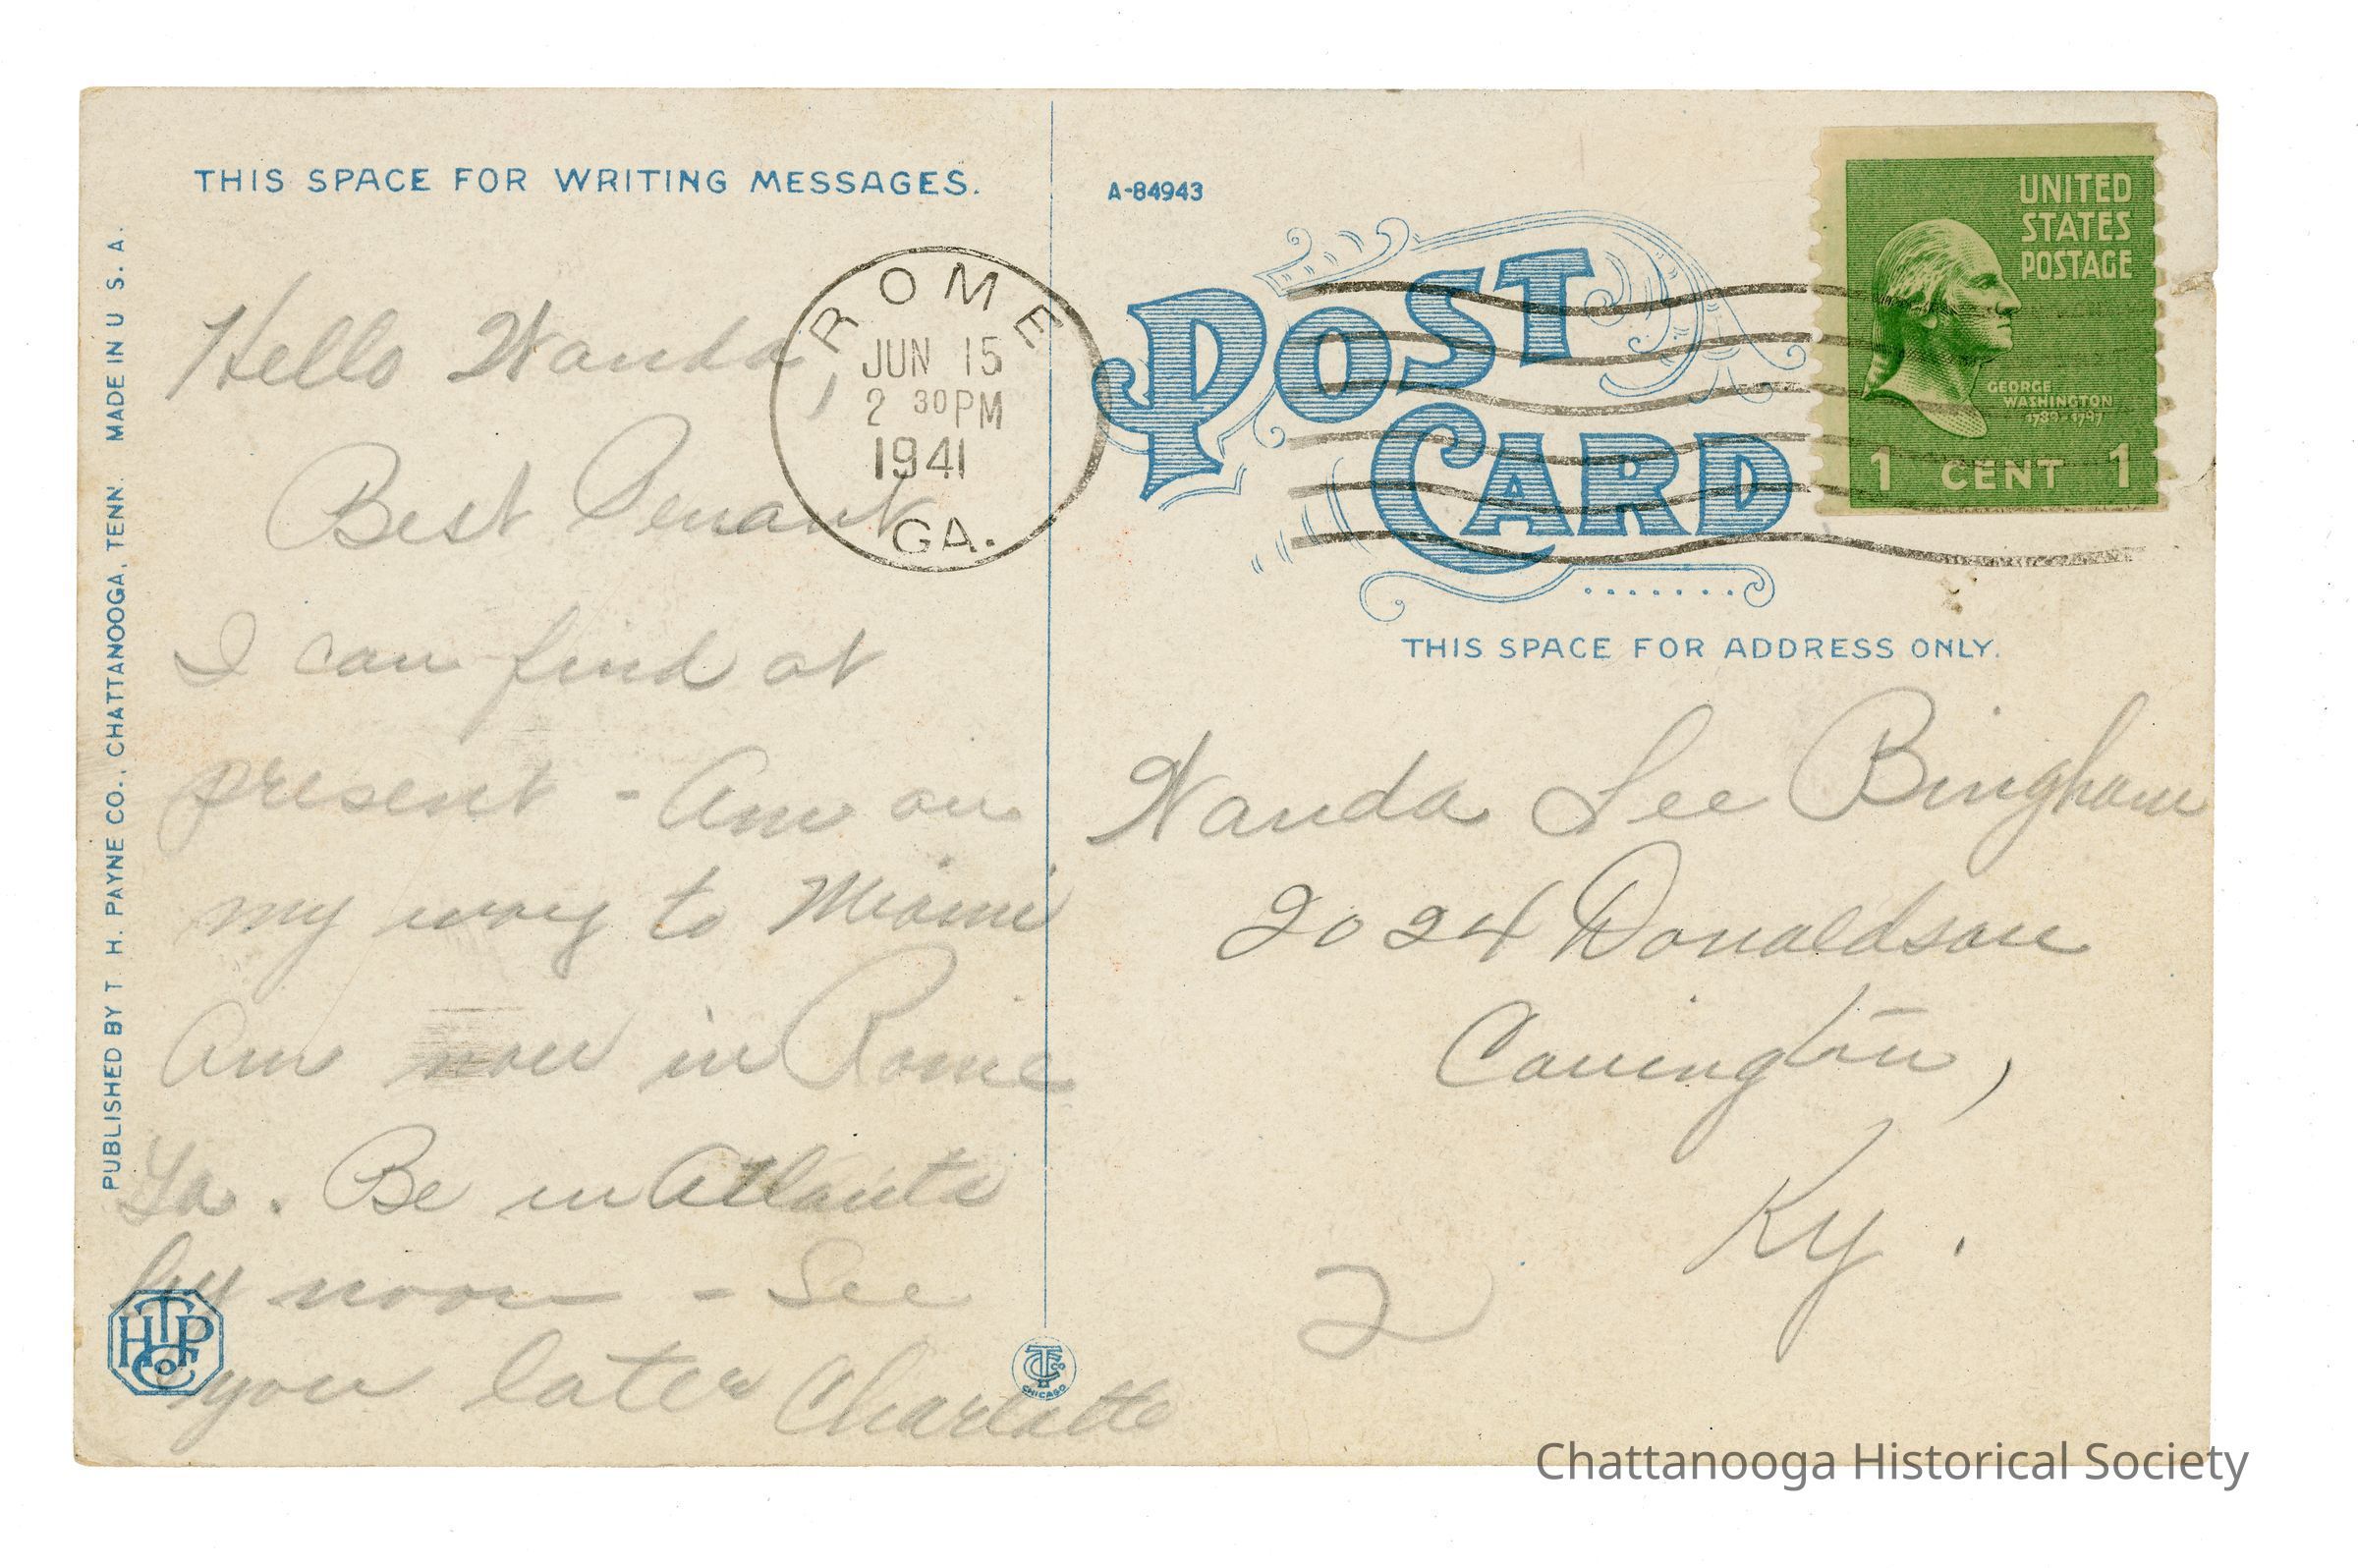 THIS SPACE FOR WRITING MESSAGES.
Hello Wanda,
Best
I can find at
present - Am on
my way to Miami
Am now in Rome
Ga. Be in Atlanta
by noon - See
you later Charlotte
PUBLISHED BY T. H. PAYNE CO., CHATTANOOGA, TENN. MADE IN U. S. A.
THPCo
ROME
JUN 15
2 30PM
1941
GA.
A-84943
POST
CARD
UNITED
STATES
POSTAGE
GEORGE
WASHINGTON
1789-1797
1 CENT 1
THIS SPACE FOR ADDRESS ONLY.
Wanda Lee Bingham
2024 Donaldson
Covington,
Ky.
2
CHICAGO
Chattanooga Historical Society